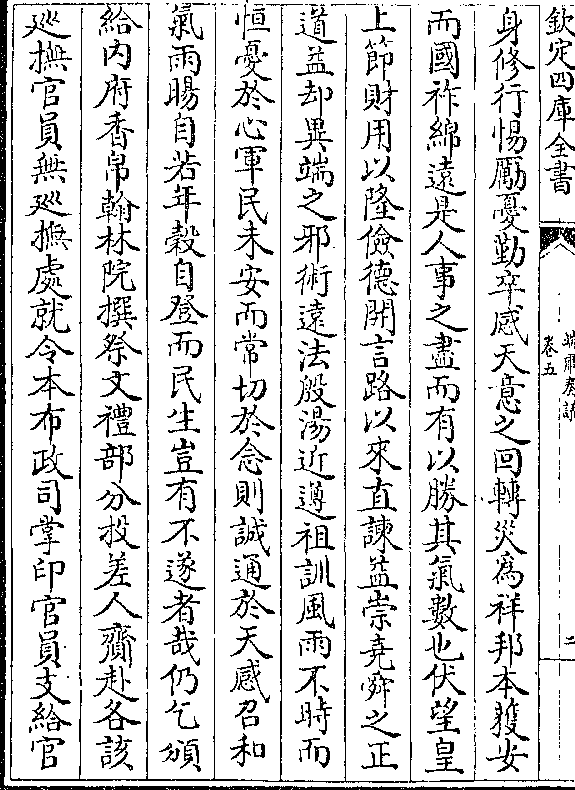 欽定四庫全書
端肅奏議
卷五
二
身修行惕勵憂勤卒感天意之回轉災為祥邦本獲安
而國祚綿遠是人事之盡而有以勝其氣數也伏望皇
上節財用以隆儉德開言路以來直諫益崇堯舜之正
道益却異端之邪術遠法殷湯近遵祖訓風雨不時而
恒憂於心軍民未安而常切於念則誠通於天感召和
氣雨暘自若年穀自登而民生豈有不遂者哉仍乞頒
給内府香帛翰林院撰祭文禮部分投差人齎赴各該
廵撫官員無廵撫處就令本布政司掌印官員支給官